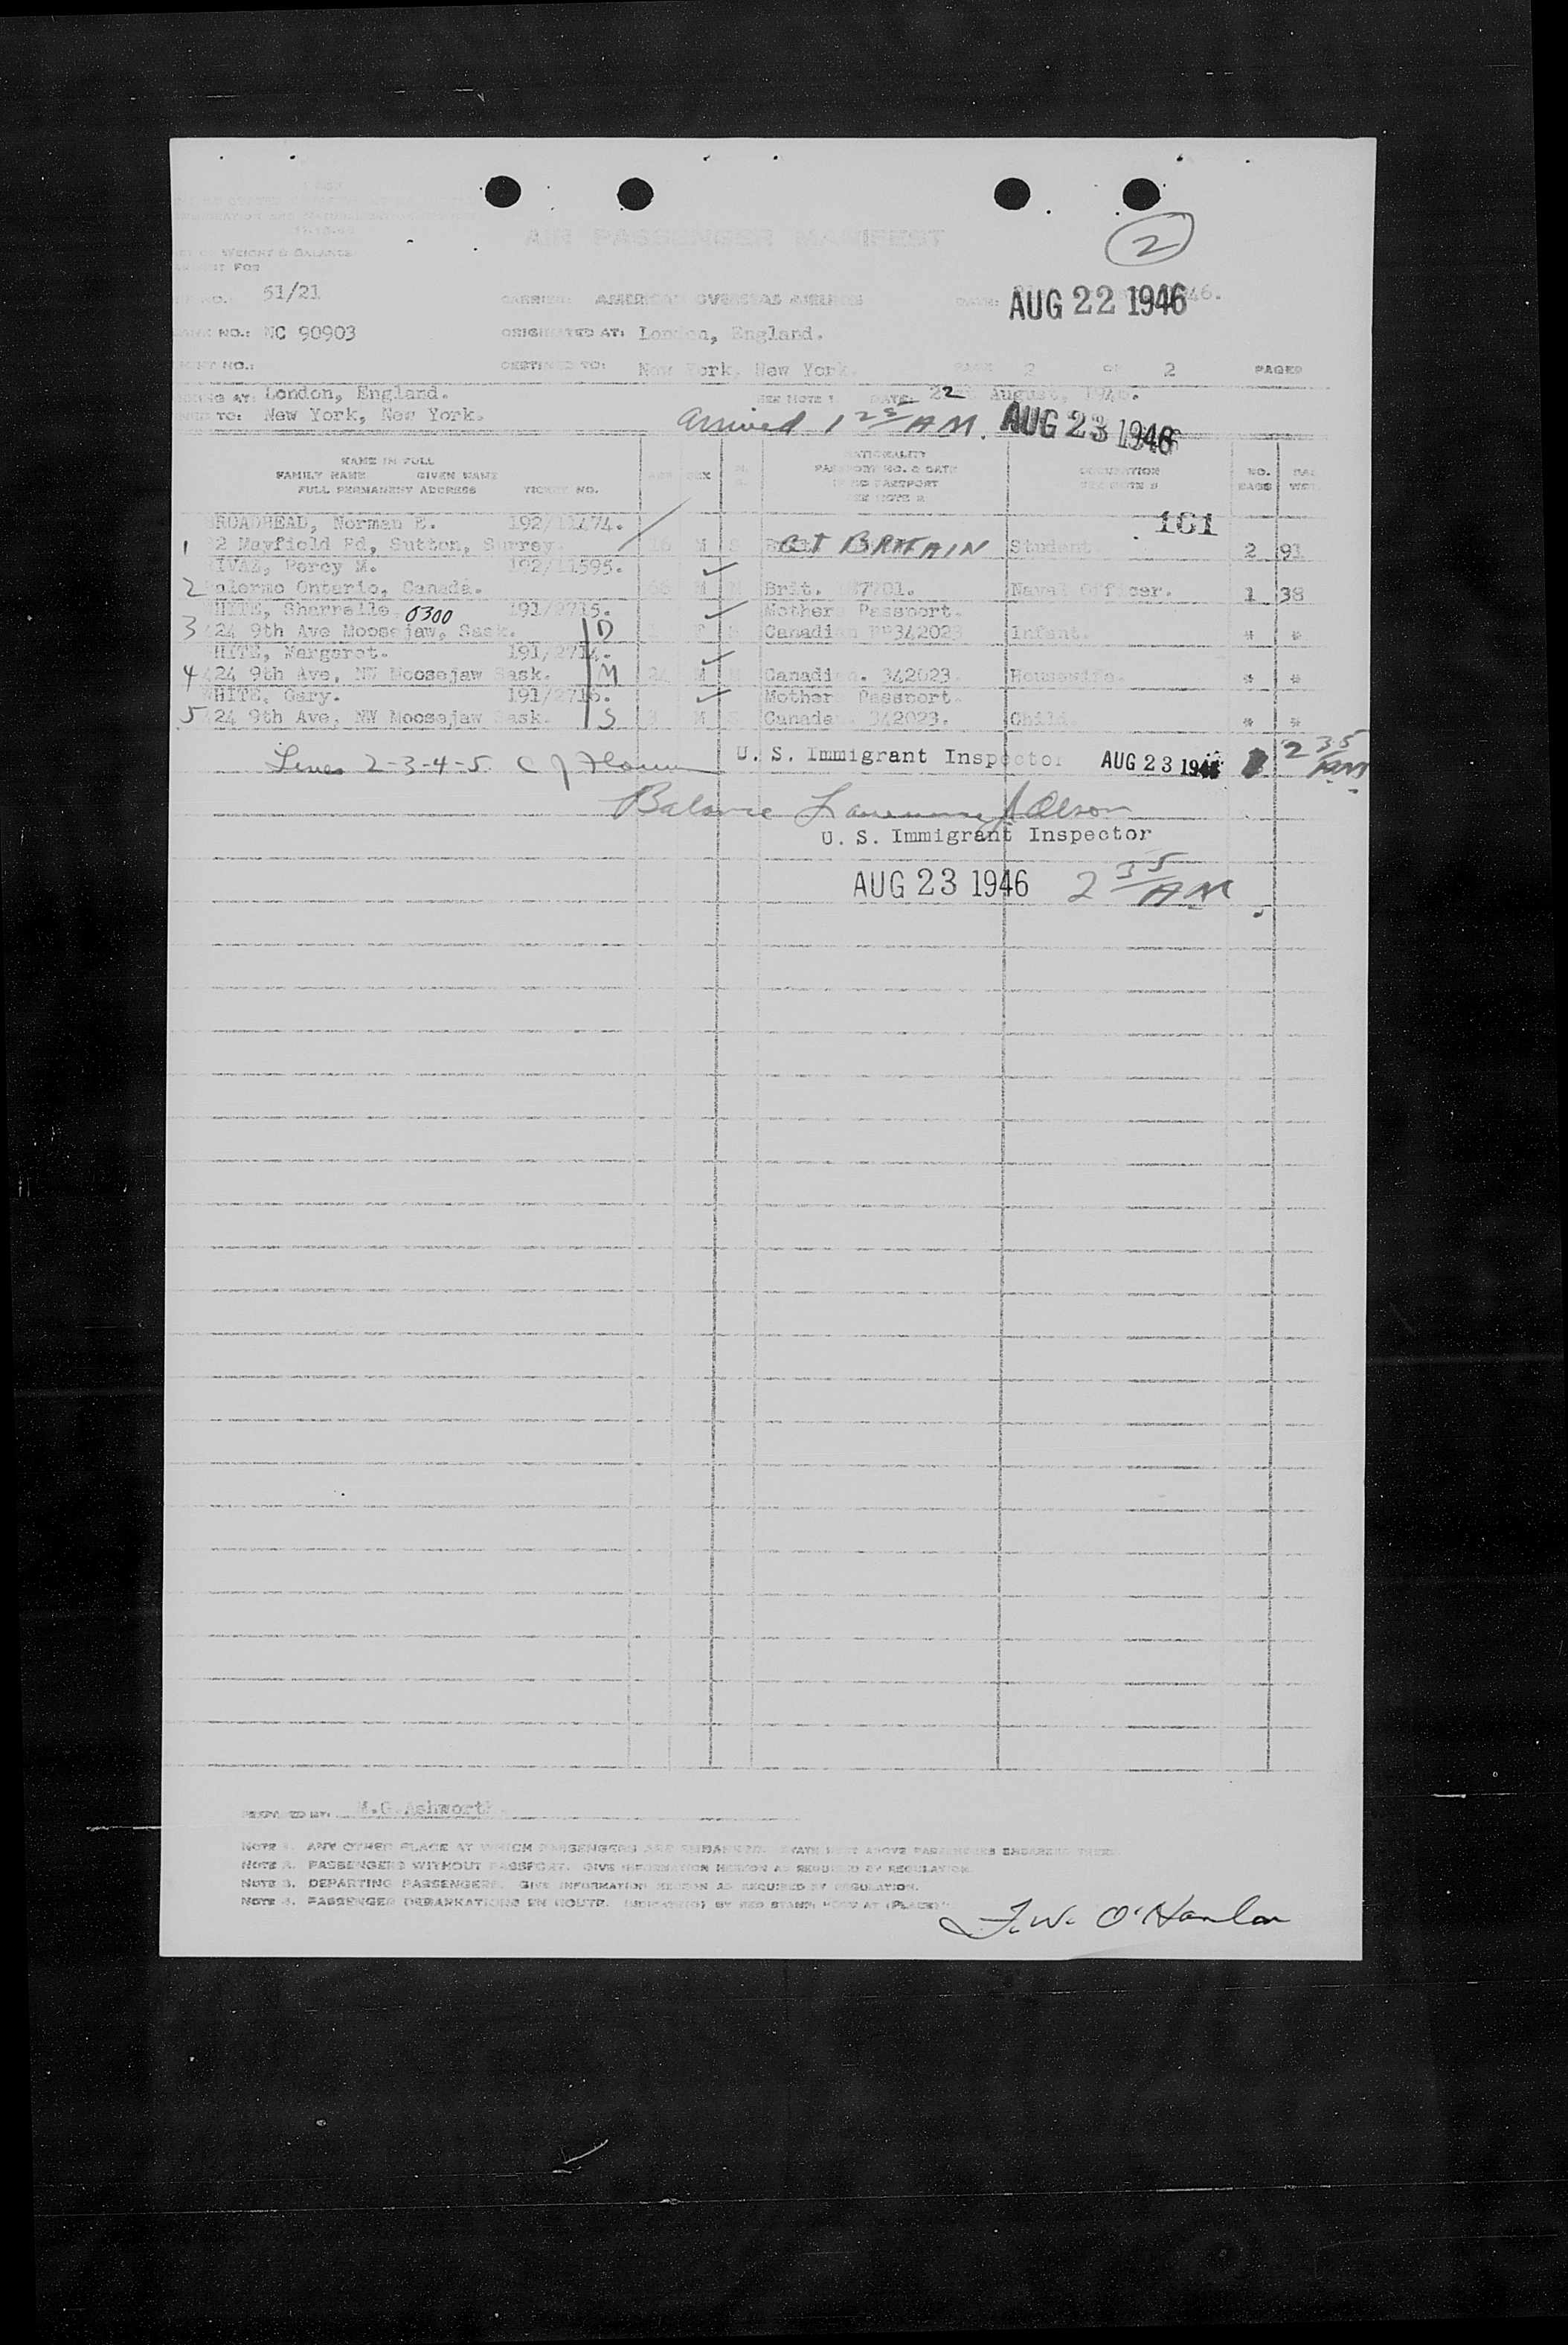 AIR PASSENGER MANIFEST
2
WEIGHT & BALANCE
FOR
NO. 51/21 CARRIER: AMERICAN OVERSEAS AIRLINES DATE: AUG 22 1946 46.
NO.: NC 90903 ORIGINATED AT: London, England.
NO.: DESTINED TO: New York, New York. PAGE 2 OF 2 PAGES
AT: London, England. SEE NOTE 1. DATE: 22 August, 1946.
TO: New York, New York.
Arrived 1 25 AM. AUG 23 1946
NAME IN FULL NATIONALITY
FAMILY NAME GIVEN NAME SEX PASSPORT NO. & DATE OCCUPATION NO.
FULL PERMANENT ADDRESS TICKET NO. IF NO PASSPORT SEE NOTE 3 BAGS
SEE NOTE 2
BROADHEAD, Norman E. 192/11474. 101
1 32 Mayfield Rd, Sutton, Surrey. 16 M S GT BRITAIN Student. 2 91
Percy M. 192/11595.
2 Palermo Ontario, Canada. 66 M M Brit. 7701. Naval Officer. 1 38
WHITE, Sharrelle. 0300 191/2715. Mothers Passport.
3 424 9th Ave Moosejaw, Sask. D F Canadian PP342023 Infant. * *
WHITE, Margaret. 191/2714.
4 424 9th Ave, NW Moosejaw Sask. M 24 M M Canadian. 342023. Housewife. * *
WHITE, Gary. 191/2716. Mothers Passport.
5 424 9th Ave, NW Moosejaw Sask. S 3 M S Canada. 342023. Child. * *
Lines 2-3-4-5 C J U. S. Immigrant Inspector AUG 23 1946 2 35 AM
Balance Olson
U. S. Immigrant Inspector
AUG 23 1946 2 35 AM
PREPARED BY: M.G. Ashworth
NOTE 1. ANY OTHER PLACE AT WHICH PASSENGERS ARE EMBARKED. STATE JUST ABOVE PASSENGERS EMBARKED THERE.
NOTE 2. PASSENGERS WITHOUT PASSPORT. GIVE INFORMATION HEREON AS REQUIRED BY REGULATION.
NOTE 3. DEPARTING PASSENGERS. GIVE INFORMATION HEREON AS REQUIRED BY REGULATION.
NOTE 4. PASSENGER DEBARKATIONS EN ROUTE. BY RED STAMP AT (PLACE)
F. W. O'Hanlon